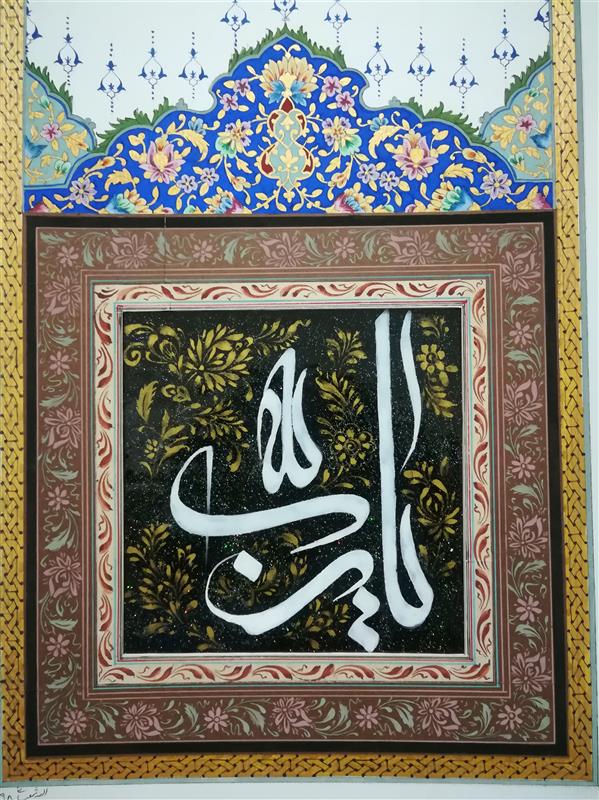 یا رب الله